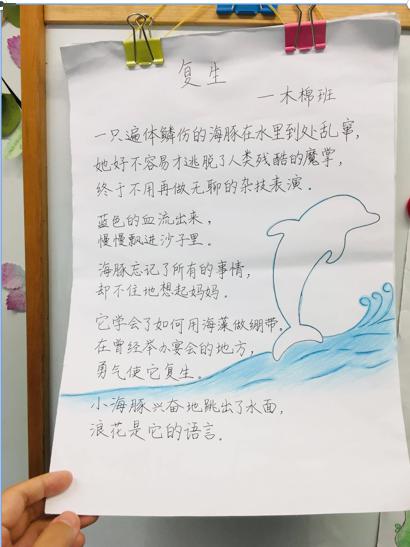 复生
一木棉班
一只遍体鳞伤的海豚在水里到处乱窜,
她好不容易才逃脱了人类残酷的魔掌,
终于不用再做无聊的杂技表演.
蓝色的血流出来,
慢慢飘进沙子里.
海豚忘记了所有的事情,
却不住地想起妈妈.
它学会了如何用海藻做绷带.
在曾经举办宴会的地方,
勇气使它复生.
小海豚兴奋地跳出了水面,
浪花是它的语言.